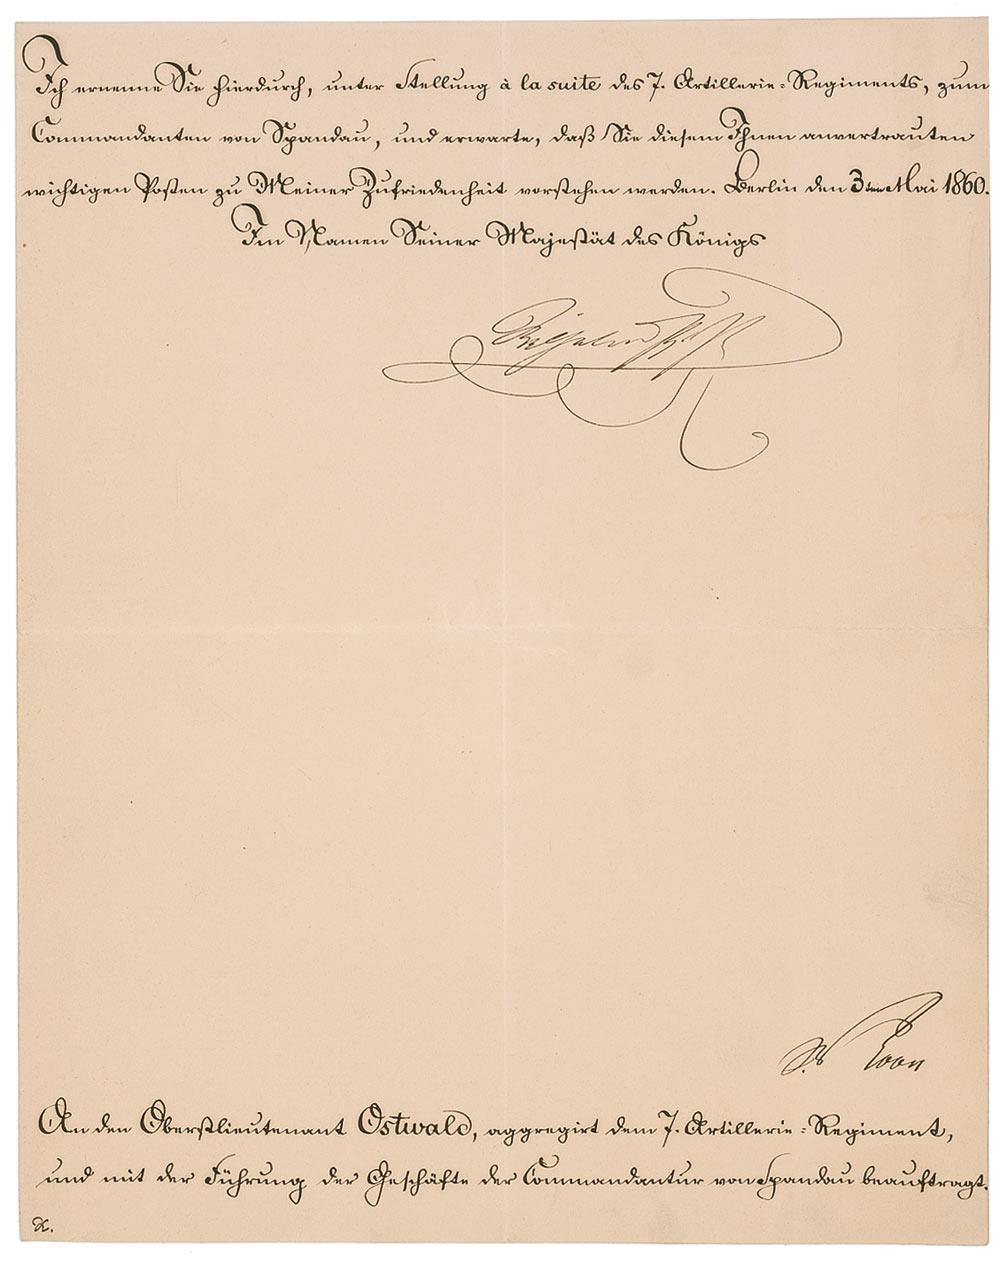 Ich ernenne Sie hierdurch, unter Stellung à la suite des 7. Artillerie-Regiments, zum
Commandanten von Spandau, und erwarte, daß Sie diesem Ihnen anvertrauten
wichtigen Posten zu Meiner Zufriedenheit vorstehen werden. Berlin den 3ten Mai 1860.
Im Namen Seiner Majestät des Königs
Wilhelm
Roon
An den Oberstlieutenant Ostwald, aggregirt dem 7. Artillerie-Regiment,
und mit der Führung der Geschäfte der Commandantur von Spandau beauftragt.